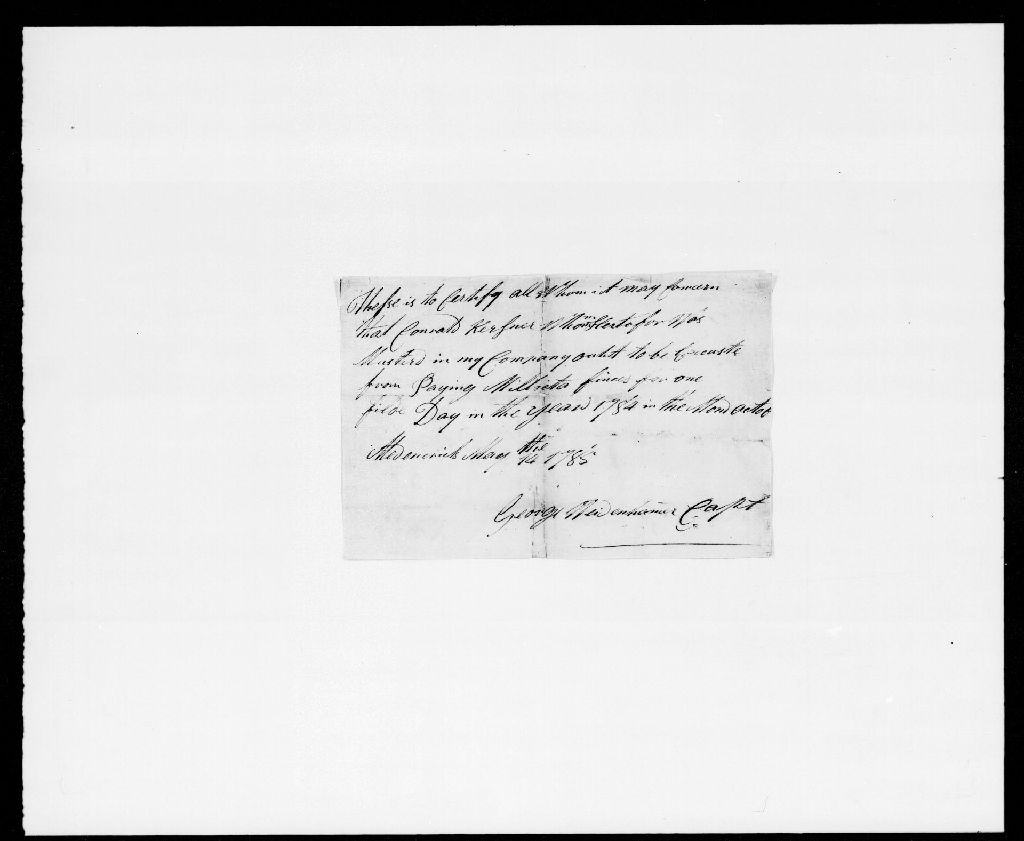 Thesse is to Certify all Whom it may Concern
that Conrald Kersner Whom Hertofor Was
Musterd in my Company ouht to be Excuste
from Paying Millieta fines for one
file Day in the year 1784 in the Mond octob
May the 14 1785
George Capt